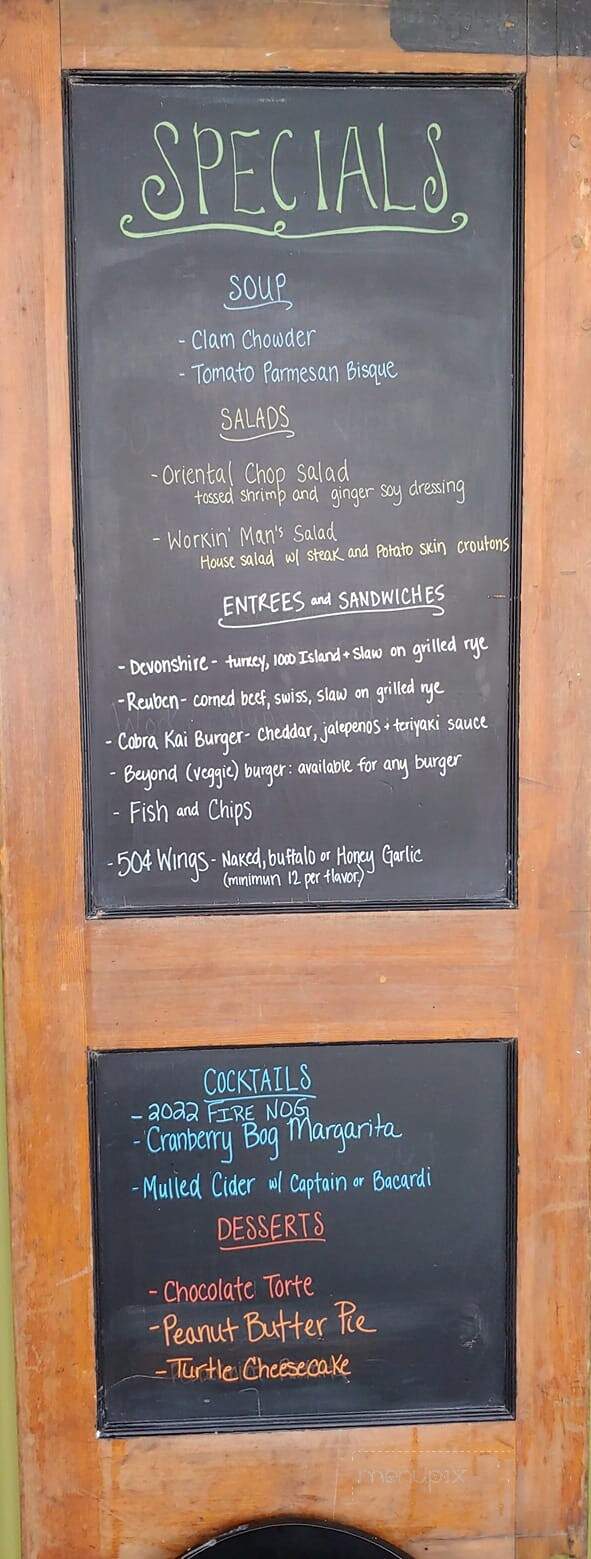 SPECIALS
SOUP
- Clam Chowder
- Tomato Parmesan Bisque
SALADS
- Oriental Chop Salad
tossed shrimp and ginger soy dressing
- Workin' Man's Salad
House salad w/ steak and Potato skin croutons
ENTREES and SANDWICHES
- Devonshire - turkey, 1000 Island + Slaw on grilled rye
- Reuben - corned beef, swiss, slaw on grilled rye
- Cobra Kai Burger - cheddar, jalepenos + teriyaki sauce
- Beyond (veggie) burger: available for any burger
- Fish and Chips
- 50¢ Wings - Naked, buffalo or Honey Garlic
(minimun 12 per flavor)
COCKTAILS
- 2022 FIRE NOG
- Cranberry Bog Margarita
- Mulled Cider w/ Captain or Bacardi
DESSERTS
- Chocolate Torte
- Peanut Butter Pie
- Turtle Cheesecake
menupix